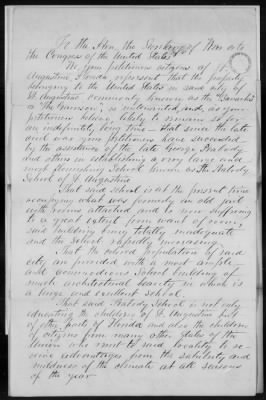 To the Hon. the Secretary of War and to
the Congress of the United States
We your petitioners citizens of St.
Augustine, Florida, represent that the property
belonging to the United States in said city of
St. Augustine commonly known as the "Barracks"
or "The Garrison", is untenanted, and, as your
petitioners believe, likely to remain so for
an indefinitely long time - that since the late
civil war your petitioners have succeeded
by the assistance of the late George Peabody
and others in establishing a very large and
most flourishing School known as the Peabody
School of St. Augustine
That said school is at the present time
occupying what was formerly an old jail
with rooms attached and is now suffering
to a great extent from want of room,
said building being totally inadequate
and the School rapidly increasing.
That the colored population of said
city are provided with a most ample
and commodious School building of
much architectural beauty in which is
a large and excellent School.
That said Peabody School is not only
educating the children of St. Augustine but
of other parts of Florida and also the children
of citizens from many other States of the
Union who resort to said locality to se-
cure advantages from the salubrity and
mildness of the climate at all seasons
of the year